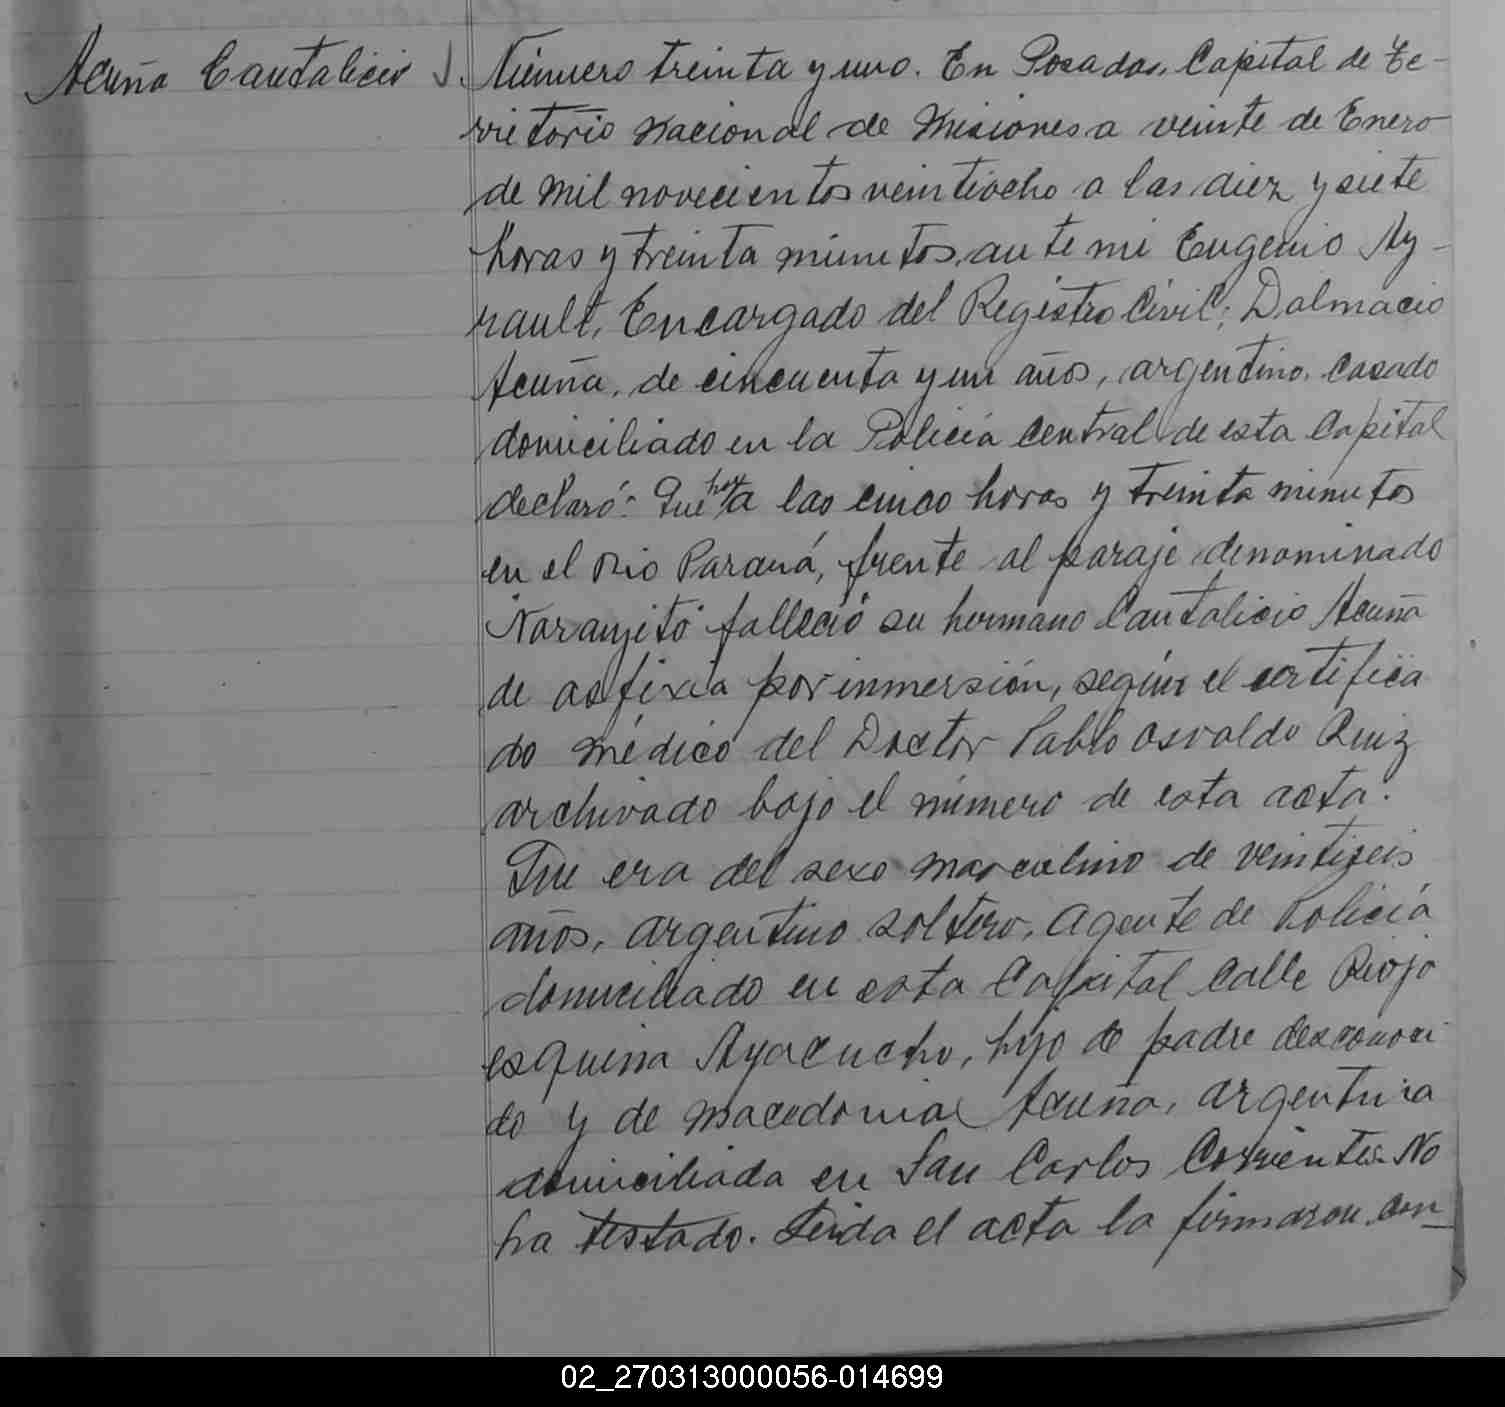 Acuña Cantalicio
Número treinta y uno. En Posadas, Capital de Te-
rritorio Nacional de Misiones a veinte de Enero
de mil novecientos veintiocho a las diez y siete
horas y treinta minutos, ante mi Eugenio Ay-
rault, Encargado del Registro Civil; Dalmacio
Acuña, de cincuenta y un años, argentino, casado
domiciliado en la Policía Central de esta Capital
declaró: Que hoy a las cinco horas y treinta minutos
en el Rio Paraná, frente al paraje denominado
Naranjito falleció su hermano Cantalicio Acuña
de asfixia por inmersión, según el certifica
do médico del Doctor Pablo Osvaldo Ruiz
archivado bajo el número de esta acta.
Que era del sexo masculino de veintiseis
años, argentino soltero, agente de Policía
domiciliado en esta Capital calle Rioja
esquina Ayacucho, hijo de padre desconoci
do y de Macedonia Acuña, argentina
domiciliada en San Carlos Corrientes. No
ha testado. Leida el acta la firmaron con_
02_270313000056-014699